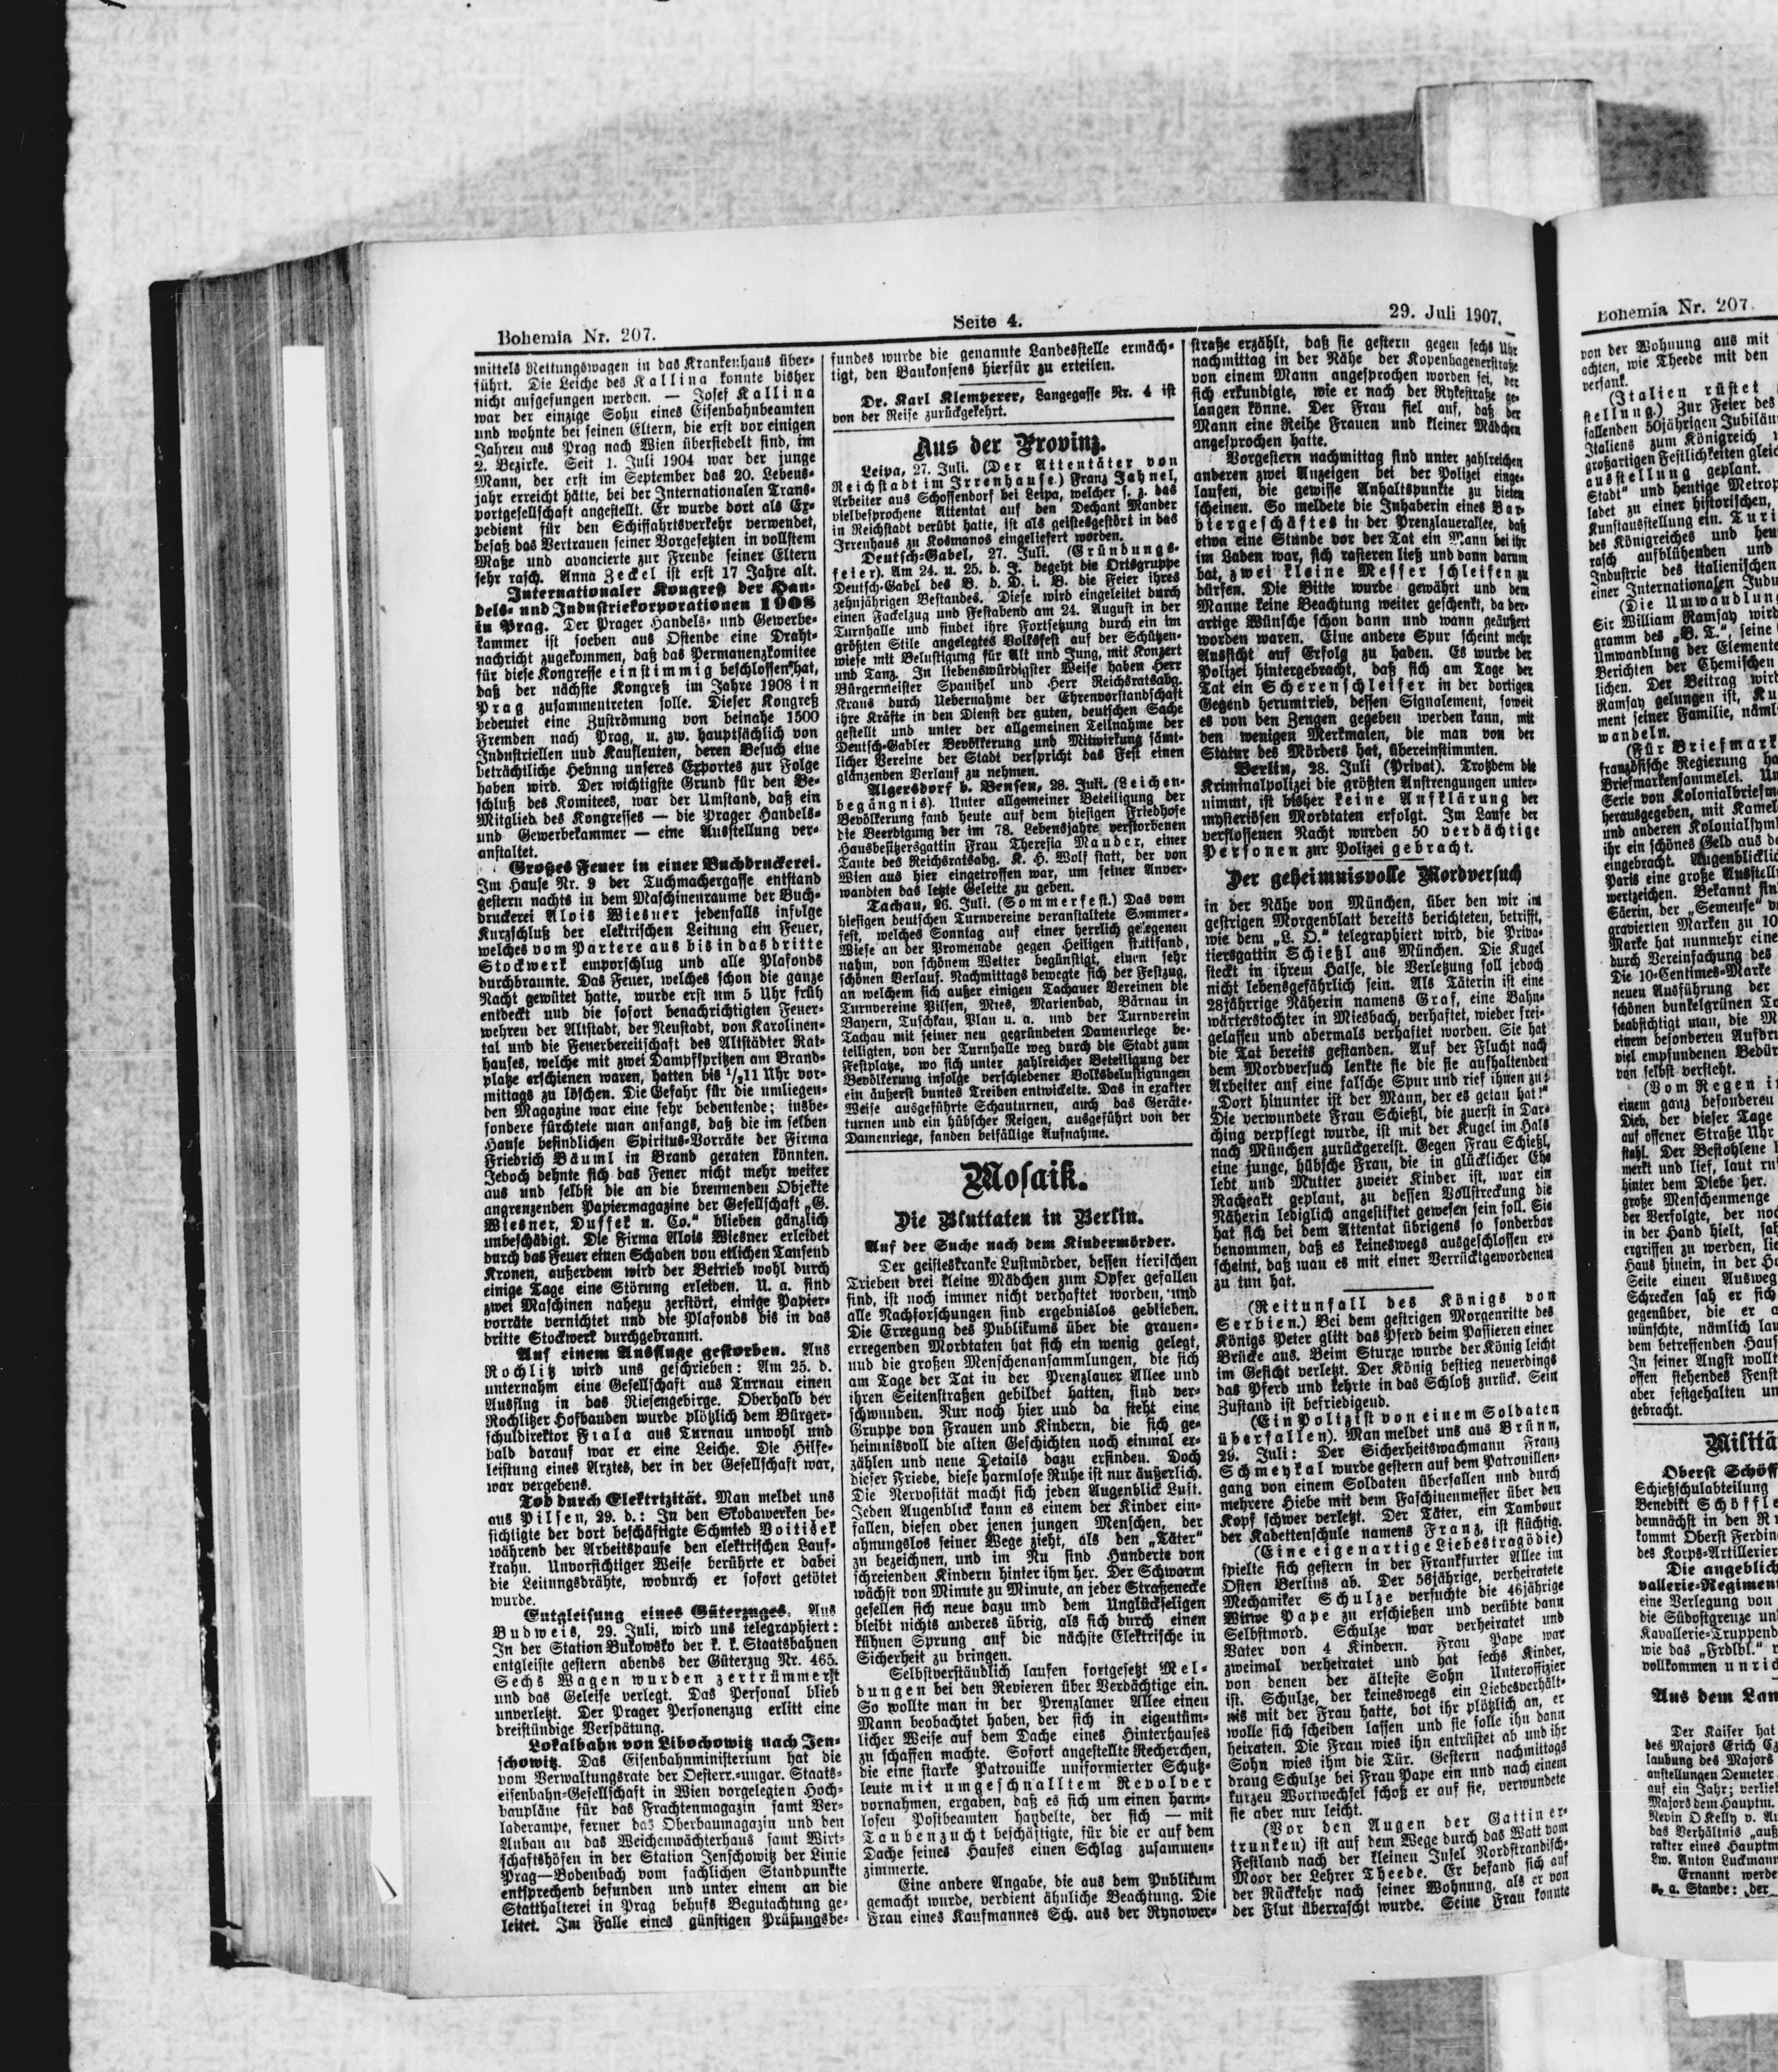 Bohemia Nr. 207.
Seite 4.
29. Juli 1907.
mittels Rettungswagen in das Krankenhaus über-
führt. Die Leiche des Kallina konnte bisher
nicht aufgefungen werden. — Josef Kallina
war der einzige Sohn eines Eisenbahnbeamten
und wohnte bei seinen Eltern, die erst vor einigen
Jahren aus Prag nach Wien übersiedelt sind, im
2. Bezirke. Seit 1. Juli 1904 war der junge
Mann, der erst im September das 20. Lebens-
jahr erreicht hätte, bei der Internationalen Trans-
portgesellschaft angestellt. Er wurde dort als Ex-
pedient für den Schiffahrtsverkehr verwendet,
besaß das Vertrauen seiner Vorgesetzten in vollstem
Maße und avancierte zur Freude seiner Eltern
sehr rasch. Anna Zeckel ist erst 17 Jahre alt.
Internationaler Kongreß der Han-
dels- und Industriekorporationen 1908
in Prag. Der Prager Handels- und Gewerbe-
kammer ist soeben aus Ostende eine Draht-
nachricht zugekommen, daß das Permanenzkomitee
für diese Kongresse einstimmig beschlossen hat,
daß der nächste Kongreß im Jahre 1908 in
Prag zusammentreten solle. Dieser Kongreß
bedeutet eine Zuströmung von beinahe 1500
Fremden nach Prag, u. zw. hauptsächlich von
Industriellen und Kaufleuten, deren Besuch eine
beträchtliche Hebung unseres Exportes zur Folge
haben wird. Der wichtigste Grund für den Be-
schluß des Komitees, war der Umstand, daß ein
Mitglied des Kongresses — die Prager Handels-
und Gewerbekammer — eine Ausstellung ver-
anstaltet.
Großes Feuer in einer Buchdruckerei.
Im Hause Nr. 9 der Tuchmachergasse entstand
gestern nachts in dem Maschinenraume der Buch-
druckerei Alois Wiesner jedenfalls infolge
Kurzschluß der elektrischen Leitung ein Feuer,
welches vom Partere aus bis in das dritte
Stockwerk emporschlug und alle Plafonds
durchbrannte. Das Feuer, welches schon die ganze
Nacht gewütet hatte, wurde erst um 5 Uhr früh
entdeckt und die sofort benachrichtigten Feuer-
wehren der Altstadt, der Neustadt, von Karolinen-
tal und die Feuerbereitschaft des Altstädter Rat-
hauses, welche mit zwei Dampfspritzen am Brand-
platze erschienen waren, hatten bis 1/211 Uhr vor-
mittags zu löschen. Die Gefahr für die umliegen-
den Magazine war eine sehr bedeutende; insbe-
sondere fürchtete man anfangs, daß die im selben
Hause befindlichen Spiritus-Vorräte der Firma
Friedrich Bäuml in Brand geraten könnten.
Jedoch dehnte sich das Feuer nicht mehr weiter
aus und selbst die an die brennenden Objekte
angrenzenden Papiermagazine der Gesellschaft „G.
Wiesner, Duffek u. Co.“ blieben gänzlich
unbeschädigt. Die Firma Alois Wiesner erleidet
durch das Feuer einen Schaden von etlichen Tausend
Kronen, außerdem wird der Betrieb wohl durch
einige Tage eine Störung erleiden. U. a. sind
zwei Maschinen nahezu zerstört, einige Papier-
vorräte vernichtet und die Plafonds bis in das
dritte Stockwerk durchgebrannt.
Auf einem Ausfluge gestorben. Aus
Rochlitz wird uns geschrieben: Am 25. d.
unternahm eine Gesellschaft aus Turnau einen
Ausflug in das Riesengebirge. Oberhalb der
Rochlitzer Hofbauden wurde plötzlich dem Bürger-
schuldirektor Fiala aus Turnau unwohl und
bald darauf war er eine Leiche. Die Hilfe-
leistung eines Arztes, der in der Gesellschaft war,
war vergebens.
Tod durch Elektrizität. Man meldet uns
aus Pilsen, 29. d.: In den Skodawerken be-
sichtigte der dort beschäftigte Schmied Voitisek
während der Arbeitspause den elektrischen Lauf-
krahn. Unvorsichtiger Weise berührte er dabei
die Leitungsdrähte, wodurch er sofort getötet
wurde.
Entgleisung eines Güterzuges. Aus
Budweis, 29. Juli, wird uns telegraphiert:
In der Station Bukowsko der k. k. Staatsbahnen
entgleiste gestern abends der Güterzug Nr. 465.
Sechs Wagen wurden zertrümmerst
und das Geleise verlegt. Das Personal blieb
unverletzt. Der Prager Personenzug erlitt eine
dreistündige Verspätung.
Lokalbahn von Libochowitz nach Jen-
schowitz. Das Eisenbahnministerium hat die
vom Verwaltungsrate der Oesterr.-ungar. Staats-
eisenbahn-Gesellschaft in Wien vorgelegten Hoch-
baupläne für das Frachtenmagazin samt Ver-
laderampe, ferner das Oberbaumagazin und den
Anbau an das Weichenwächterhaus samt Wirt-
schaftshöfen in der Station Jenschowitz der Linie
Prag—Bodenbach vom fachlichen Standpunkte
entsprechend befunden und unter einem an die
Statthalterei in Prag behufs Begutachtung ge-
leitet. Im Falle eines günstigen Prüfungsbe-
fundes wurde die genannte Landesstelle ermäch-
tigt, den Baukonsens hierfür zu erteilen.
Dr. Karl Klemperer, Langegasse Nr. 4 ist
von der Reise zurückgekehrt.
Aus der Provinz.
Leipa, 27. Juli. (Der Attentäter von
Reichstadt im Irrenhause.) Franz Jahnel,
Arbeiter aus Schoffendorf bei Leipa, welcher s. z. das
vielbesprochene Attentat auf den Dechant Mander
in Reichstadt verübt hatte, ist als geistesgestört in das
Irrenhaus zu Kosmanos eingeliefert worden.
Deutsch-Gabel, 27. Juli. (Gründungs-
feier). Am 24. u. 25. d. J. begeht die Ortsgruppe
Deutsch-Gabel des B. d. D. i. B. die Feier ihres
zehnjährigen Bestandes. Diese wird eingeleitet durch
einen Fackelzug und Festabend am 24. August in der
Turnhalle und findet ihre Fortsetzung durch ein im
größten Stile angelegtes Volksfest auf der Schützen-
wiese mit Belustigung für Alt und Jung, mit Konzert
und Tanz. In liebenswürdigster Weise haben Herr
Bürgermeister Spanihel und Herr Reichsratsabg.
Kraus durch Uebernahme der Ehrenvorstandschaft
ihre Kräfte in den Dienst der guten, deutschen Sache
gestellt und unter der allgemeinen Teilnahme der
Deutsch-Gabler Bevölkerung und Mitwirkung sämt-
licher Vereine der Stadt verspricht das Fest einen
glänzenden Verlauf zu nehmen.
Algersdorf b. Bensen, 28. Juli. (Leichen-
begängnis). Unter allgemeiner Beteiligung der
Bevölkerung fand heute auf dem hiesigen Friedhofe
die Beerdigung der im 78. Lebensjahre verstorbenen
Hausbesitzersgattin Frau Theresia Mauder, einer
Tante des Reichsratsabg. K. H. Wolf statt, der von
Wien aus hier eingetroffen war, um seiner Anver-
wandten das letzte Geleite zu geben.
Tachau, 26. Juli. (Sommerfest.) Das vom
hiesigen deutschen Turnvereine veranstaltete Sommer-
fest, welches Sonntag auf einer herrlich gelegenen
Wiese an der Promenade gegen Heiligen stattfand,
nahm, von schönem Wetter begünstigt, einen sehr
schönen Verlauf. Nachmittags bewegte sich der Festzug,
an welchem sich außer einigen Tachauer Vereinen die
Turnvereine Pilsen, Mies, Marienbad, Bärnau in
Bayern, Tuschkau, Plan u. a. und der Turnverein
Tachau mit seiner neu gegründeten Damenriege be-
teiligten, von der Turnhalle weg durch die Stadt zum
Festplatze, wo sich unter zahlreicher Beteiligung der
Bevölkerung infolge verschiedener Volksbelustigungen
ein äußerst buntes Treiben entwickelte. Das in exakter
Weise ausgeführte Schauturnen, auch das Geräte-
turnen und ein hübscher Reigen, ausgeführt von der
Damenriege, fanden beifällige Aufnahme.
Mosaik.
Die Bluttaten in Berlin.
Auf der Suche nach dem Kindermörder.
Der geisteskranke Lustmörder, dessen tierischen
Trieben drei kleine Mädchen zum Opfer gefallen
sind, ist noch immer nicht verhaftet worden, und
alle Nachforschungen sind ergebnislos geblieben.
Die Erregung des Publikums über die grauen-
erregenden Mordtaten hat sich ein wenig gelegt,
und die großen Menschenansammlungen, die sich
am Tage der Tat in der Prenzlauer Allee und
ihren Seitenstraßen gebildet hatten, sind ver-
schwunden. Nur noch hier und da steht eine
Gruppe von Frauen und Kindern, die sich ge-
heimnisvoll die alten Geschichten noch einmal er-
zählen und neue Details dazu erfinden. Doch
dieser Friede, diese harmlose Ruhe ist nur äußerlich.
Die Nervosität macht sich jeden Augenblick Luft.
Jeden Augenblick kann es einem der Kinder ein-
fallen, diesen oder jenen jungen Menschen, der
ahnungslos seiner Wege zieht, als den „Täter“
zu bezeichnen, und im Nu sind Hunderte von
schreienden Kindern hinter ihm her. Der Schwarm
wächst von Minute zu Minute, an jeder Straßenecke
gesellen sich neue dazu und dem Unglückseligen
bleibt nichts anderes übrig, als sich durch einen
kühnen Sprung auf die nächste Elektrische in
Sicherheit zu bringen.
Selbstverständlich laufen fortgesetzt Mel-
dungen bei den Revieren über Verdächtige ein.
So wollte man in der Prenzlauer Allee einen
Mann beobachtet haben, der sich in eigentüm-
licher Weise auf dem Dache eines Hinterhauses
zu schaffen machte. Sofort angestellte Recherchen,
die eine starke Patrouille uniformierter Schutz-
leute mit umgeschnalltem Revolver
vornahmen, ergaben, daß es sich um einen harm-
losen Postbeamten handelte, der sich — mit
Taubenzucht beschäftigte, für die er auf dem
Dache seines Hauses einen Schlag zusammen-
zimmerte.
Eine andere Angabe, die aus dem Publikum
gemacht wurde, verdient ähnliche Beachtung. Die
Frau eines Kaufmannes Sch. aus der Rynower-
straße erzählt, daß sie gestern gegen sechs Uhr
nachmittag in der Nähe der Kopenhagenerstraße
von einem Mann angesprochen worden sei, der
sich erkundigte, wie er nach der Rykestraße ge-
langen könne. Der Frau fiel auf, daß der
Mann eine Reihe Frauen und kleiner Mädchen
angesprochen hatte.
Vorgestern nachmittag sind unter zahlreichen
anderen zwei Anzeigen bei der Polizei einge-
laufen, die gewisse Anhaltspunkte zu bieten
scheinen. So meldete die Inhaberin eines Bar-
biergeschäftes in der Prenzlauerallee, daß
etwa eine Stunde vor der Tat ein Mann bei ihr
im Laden war, sich rasieren ließ und dann darum
bat, zwei kleine Messer schleifen zu
dürfen. Die Bitte wurde gewährt und dem
Manne keine Beachtung weiter geschenkt, da der-
artige Wünsche schon dann und wann geäußert
worden waren. Eine andere Spur scheint mehr
Aussicht auf Erfolg zu haben. Es wurde der
Polizei hintergebracht, daß sich am Tage der
Tat ein Scherenschleifer in der dortigen
Gegend herumtrieb, dessen Signalement, soweit
es von den Zeugen gegeben werden kann, mit
den wenigen Merkmalen, die man von der
Statur des Mörders hat, übereinstimmten.
Berlin, 28. Juli (Privat). Trotzdem die
Kriminalpolizei die größten Anstrengungen unter-
nimmt, ist bisher keine Aufklärung der
mysteriösen Mordtaten erfolgt. Im Laufe der
verflossenen Nacht wurden 50 verdächtige
Personen zur Polizei gebracht.
Der geheimnisvolle Mordversuch
in der Nähe von München, über den wir im
gestrigen Morgenblatt bereits berichteten, betrifft,
wie dem „L. O.“ telegraphiert wird, die Priva-
tiersgattin Schießl aus München. Die Kugel
steckt in ihrem Halse, die Verletzung soll jedoch
nicht lebensgefährlich sein. Als Täterin ist eine
28jährrige Näherin namens Graf, eine Bahn-
wärterstochter in Miesbach, verhaftet, wieder frei-
gelassen und abermals verhaftet worden. Sie hat
die Tat bereits gestanden. Auf der Flucht nach
dem Mordversuch lenkte sie die sie aufhaltenden
Arbeiter auf eine falsche Spur und rief ihnen zu:
„Dort hinunter ist der Mann, der es getan hat!“
Die verwundete Frau Schießl, die zuerst in Dar-
ching verpflegt wurde, ist mit der Kugel im Hals
nach München zurückgereist. Gegen Frau Schießl,
eine junge, hübsche Frau, die in glücklicher Ehe
lebt und Mutter zweier Kinder ist, war ein
Racheakt geplant, zu dessen Vollstreckung die
Näherin lediglich angestiftet gewesen sein soll. Sie
hat sich bei dem Attentat übrigens so sonderbar
benommen, daß es keineswegs ausgeschlossen er-
scheint, daß man es mit einer Verrücktgewordenen
zu tun hat.
(Reitunfall des Königs von
Serbien.) Bei dem gestrigen Morgenritte des
Königs Peter glitt das Pferd beim Passieren einer
Brücke aus. Beim Sturze wurde der König leicht
im Gesicht verletzt. Der König bestieg neuerdings
das Pferd und kehrte in das Schloß zurück. Sein
Zustand ist befriedigend.
(Ein Polizist von einem Soldaten
überfallen). Man meldet uns aus Brünn,
29. Juli: Der Sicherheitswachmann Franz
Schmeykal wurde gestern auf dem Patrouillen-
gang von einem Soldaten überfallen und durch
mehrere Hiebe mit dem Faschinenmesser über den
Kopf schwer verletzt. Der Täter, ein Tambour
der Kadettenschule namens Franz, ist flüchtig.
(Eine eigenartige Liebestragödie)
spielte sich gestern in der Frankfurter Allee im
Osten Berlins ab. Der 56jährige, verheiratete
Mechaniker Schulze versuchte die 46jährige
Witwe Pape zu erschießen und verübte dann
Selbstmord. Schulze war verheiratet und
Vater von 4 Kindern. Frau Pape war
zweimal verheiratet und hat sechs Kinder,
von denen der älteste Sohn Unteroffizier
ist. Schulze, der keineswegs ein Liebesverhält-
nis mit der Frau hatte, bot ihr plötzlich an, er
wolle sich scheiben lassen und sie solle ihn dann
heiraten. Die Frau wies ihn entrüstet ab und ihr
Sohn wies ihm die Tür. Gestern nachmittags
drang Schulze bei Frau Pape ein und nach einem
kurzen Wortwechsel schoß er auf sie, verwundete
sie aber nur leicht.
(Vor den Augen der Gattin er-
trunken) ist auf dem Wege durch das Watt vom
Festland nach der kleinen Insel Nordstrandisch-
Moor der Lehrer Theede. Er befand sich auf
der Rückkehr nach seiner Wohnung, als er von
der Flut überrascht wurde. Seine Frau konnte
Bohemia Nr. 207.
von der Wohnung aus mit
achten, wie Theede mit den
versank.
(Italien rüstet
stellung.) Zur Feier des
fallenden 50jährigen Jubiläu
Italiens zum Königreich
großartigen Festlichkeiten gleic
ausstellung geplant.
Stadt“ und heutige Metrop
ladet zu einer historischen,
Kunstausstellung ein. Turi
des Königreiches und heu
rasch aufblühenden und
Industrie des italienischen
einer Internationalen Indu
(Die Umwandlun
Sir William Ramsay wird
gramm des „B. T.“, seine
Umwandlung der Elemente
Berichten der Chemischen
lichen. Der Beitrag wird
Ramsay gelungen ist, Ku
ment seiner Familie, näml
wandeln.
(Für Briefmark
französische Regierung ha
Briefmarkensammelei. Un
Serie von Kolonialbriefm
herausgegeben, mit Kamel
und anderen Kolonialsym
ihr ein schönes Geld aus de
eingebracht. Augenblicklic
Paris eine große Ausstell
wertzeichen. Bekannt sin
Säerin, der „Semeuse“ v
gravierten Marken zu 10
Marke hat nunmehr eine
durch Vereinfachung des
Die 10-Centimes-Marke
neuen Ausführung der
schönen dunkelgrünen To
beabsichtigt man, die M
einem besonderen Aufdru
viel empfundenen Bedür
von selbst versteht.
(Vom Regen i
einem ganz besonderen
Dieb, der dieser Tage
auf offener Straße Uhr
stahl. Der Bestohlene
merkt und lief, laut ru
hinter dem Diebe her.
große Menschenmenge
der Verfolgte, der noc
in der Hand hielt, sah
ergriffen zu werden, lie
Haus hinein, in der Ho
Seite einen Ausweg
Schrecken sah er sich
gegenüber, die er a
wünschte, nämlich lau
dem betreffenden Haus
In seiner Angst wollt
offen stehendes Fenst
aber festgehalten un
gebracht.
Militä
Oberst Schöff
Schießschulabteilung
Benedikt Schöffle
demnächst in den Ru
kommt Oberst Ferdin
des Korps-Artillerier
Die angeblich
vallerie-Regimen
eine Verlegung von
die Südostgrenze un
Kavallerie-Truppend
wie das „Frdlbl.“
vollkommen unric
Aus dem Lan
Der Kaiser hat
des Majors Erich Ez
laubung des Majors
anstellungen Demeter
auf ein Jahr; verlieh
Majors dem Hauptm.
Nevin O Kelly v. Au
das Verhältnis „auß
rakter eines Hauptm
Lw. Anton Luckmann
Ernannt werde
u. a. Stande: der